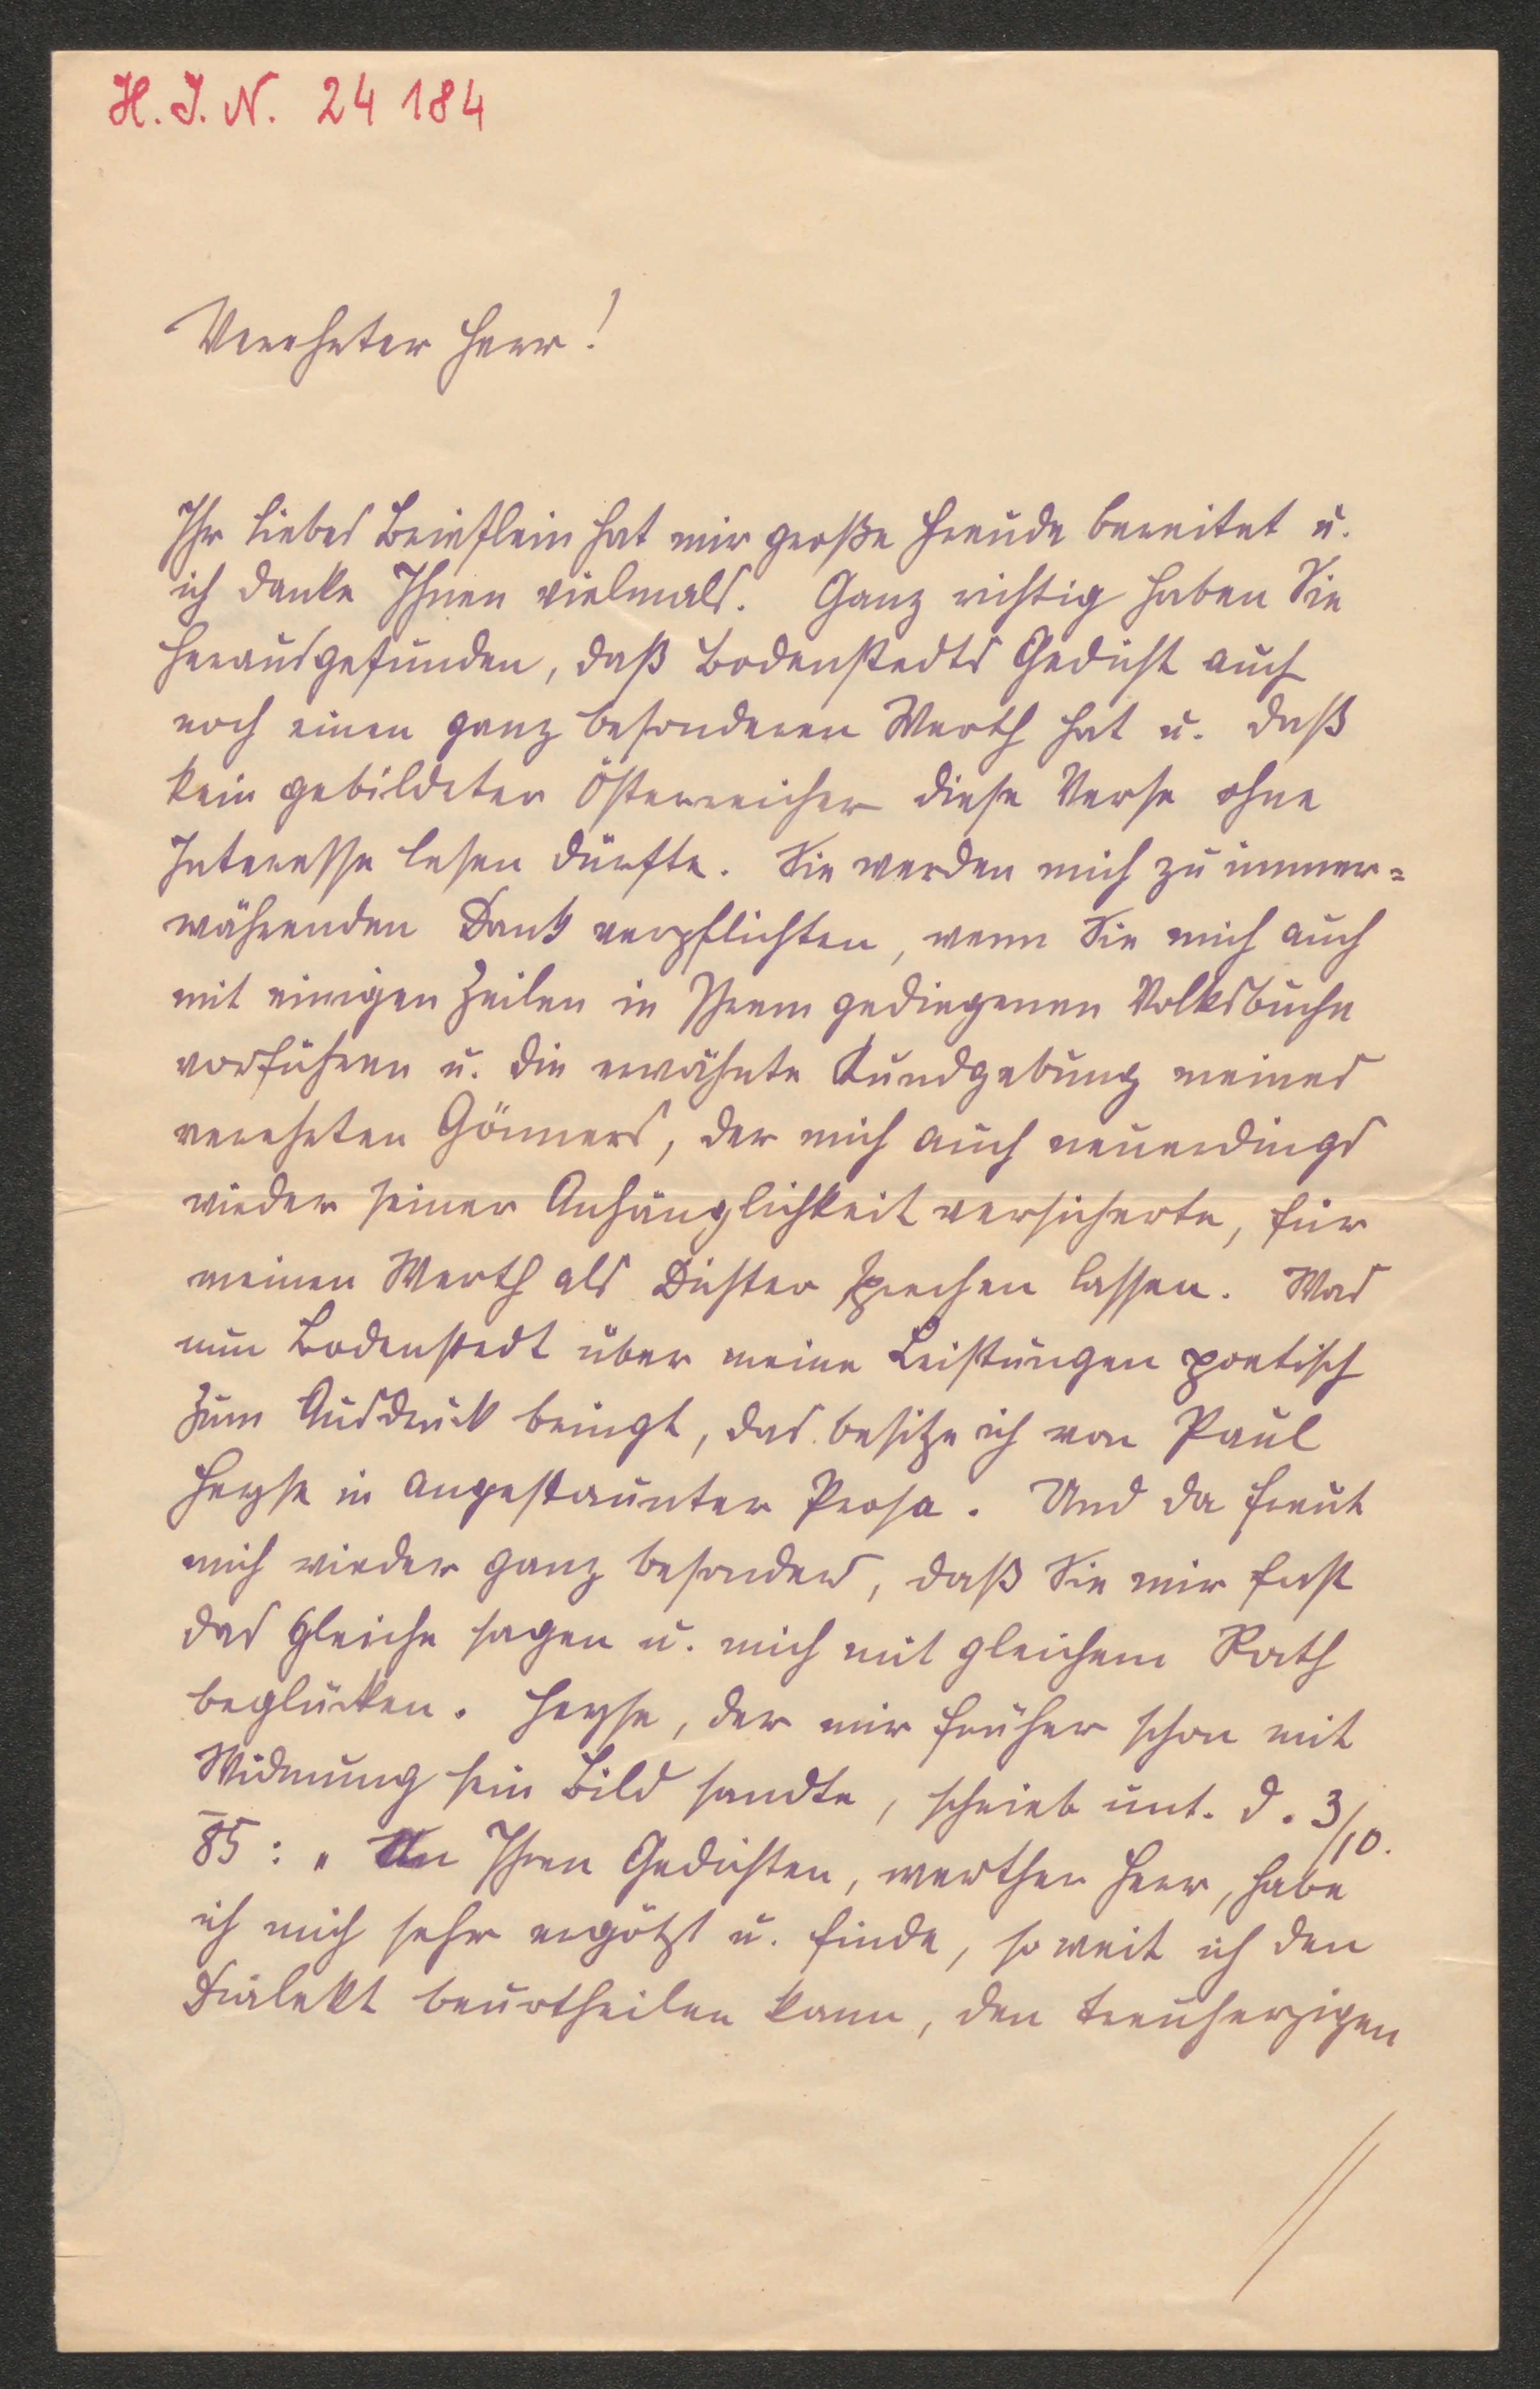 H. I. N. 24 184
Verehrter Herr!
Ihr liebes Brieflein hat mir große Freude bereitet u.
ich danke Ihnen vielmals. Ganz richtig haben Sie
herausgefunden, daß Bodenstedts Gedicht auch
noch einen ganz besonderen Werth hat u. daß
kein gebildeter Österreicher diese Verse ohne
Interesse lesen dürfte. Sie werden mich zu immer=
währenden Dank verpflichten, wenn Sie mich auch
mit einigen Zeilen in Ihrem gediegenen Volksbuche
vorführen u. die erwähnte Kundgebung meines
verehrten Gönners, der mich auch neuerdings
wieder seiner Anhänglichkeit versicherte, für
meinen Werth als Dichter sprechen lassen. Was
nun Bodenstedt über meine Leistungen poetisch
zum Ausdruck bringt, das besitze ich von Paul
Heyse in angestaunter Prosa. Und da freut
mich wieder ganz besonders, daß Sie mir fast
das Gleiche sagen u. mich mit gleichem Rath
beglücken. Heyse, der mir früher schon mit
Widmung sein Bild sandte, schrieb unt. d. 3/10.
85: „An Ihren Gedichten, werther Herr, habe
ich mich sehr ergötzt u. finde, so weit ich den
Dialekt beurtheilen kann, den treuherzigen